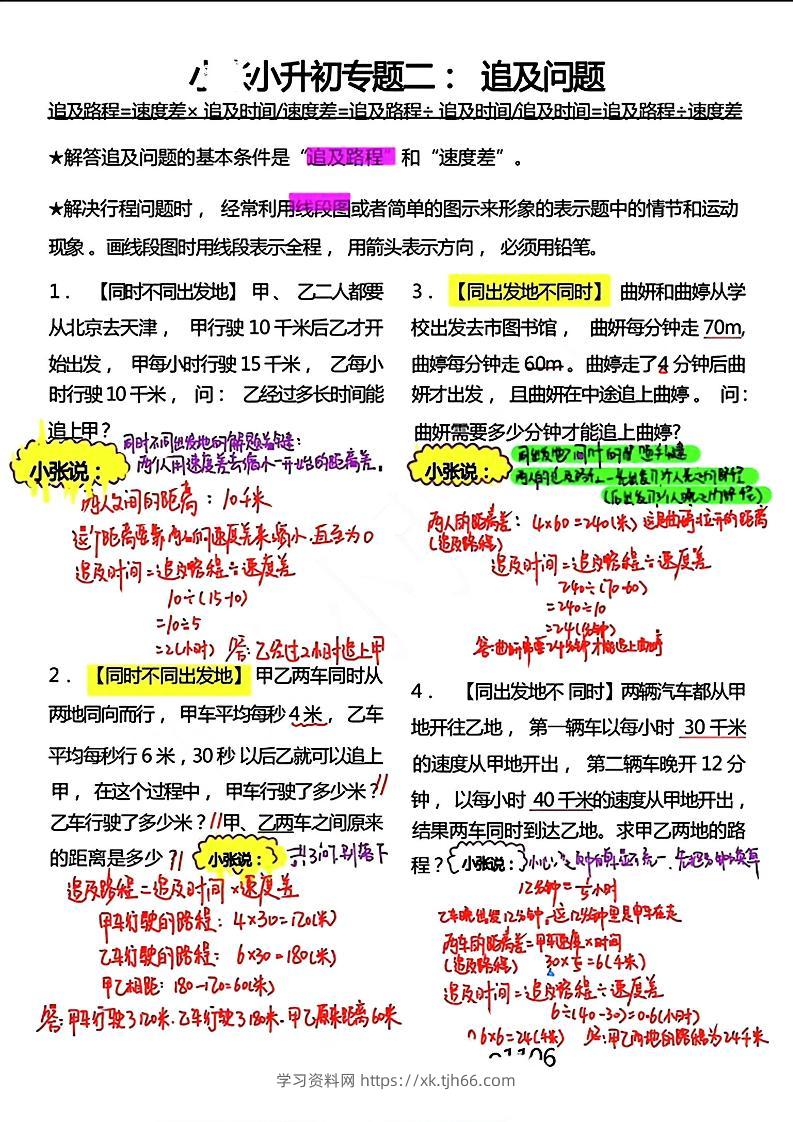 小升初专题二： 追及问题
追及路程=速度差× 追及时间/速度差=追及路程÷ 追及时间/追及时间=追及路程÷速度差
★解答追及问题的基本条件是“追及路程”和“速度差”。
★解决行程问题时， 经常利用线段图或者简单的图示来形象的表示题中的情节和运动
现象 。画线段图时用线段表示全程， 用箭头表示方向， 必须用铅笔。
1． 【同时不同出发地】 甲、 乙二人都要
从北京去天津， 甲行驶 10 千米后乙才开
始出发， 甲每小时行驶 15 千米， 乙每小
时行驶 10 千米， 问： 乙经过多长时间能
追上甲？
同时不同出发地的解题关键：
两人用速度差去缩小一开始的距离差。
小张说：
两人之间的距离：10千米
这个距离要靠两人的速度差来缩小,直至为0
追及时间=追及路程÷速度差
10÷(15-10)
=10÷5
=2(小时) 答:乙经过2小时追上甲
2． 【同时不同出发地】 甲乙两车同时从
两地同向而行， 甲车平均每秒 4 米， 乙车
平均每秒行 6 米，30 秒 以后乙就可以追上
甲， 在这个过程中， 甲车行驶了多少米？
乙车行驶了多少米？ 甲、乙两车之间原来
的距离是多少？ 小张说： 共3问,别落下
追及路程=追及时间×速度差
甲车行驶的路程：4×30=120(米)
乙车行驶的路程：6×30=180(米)
甲乙相距：180-120=60(米)
答:甲车行驶了120米.乙车行驶了180米.甲乙原来距离60米
3． 【同出发地不同时】 曲妍和曲婷从学
校出发去市图书馆， 曲妍每分钟走 70m,
曲婷每分钟走 60m 。曲婷走了4 分钟后曲
妍才出发， 且曲妍在中途追上曲婷 。 问：
曲妍需要多少分钟才能追上曲婷?
同出发地不同时的解题关键
小张说：
两人的追及路程
两人的距离差：4×60=240(米) 这是曲婷拉开的距离
(追及路程)
追及时间=追及路程÷速度差
240÷(70-60)
=240÷10
=24(分钟)
答:曲妍需要24分钟才能追上曲婷
4． 【同出发地不 同时】两辆汽车都从甲
地开往乙地， 第一辆车以每小时 30 千米
的速度从甲地开出， 第二辆车晚开 12 分
钟， 以每小时 40 千米的速度从甲地开出，
结果两车同时到达乙地。求甲乙两地的路
程？ 小张说：
12分钟=1/5小时
乙车晚出发12分钟,这12分钟里是甲车在走
两车的距离差=甲车速度×时间
(追及路程) 30×1/5=6(千米)
追及时间=追及路程÷速度差
6÷(40-30)=0.6(小时)
答:甲乙两地的路程为24千米
学习资料网 https://xk.tjh66.com